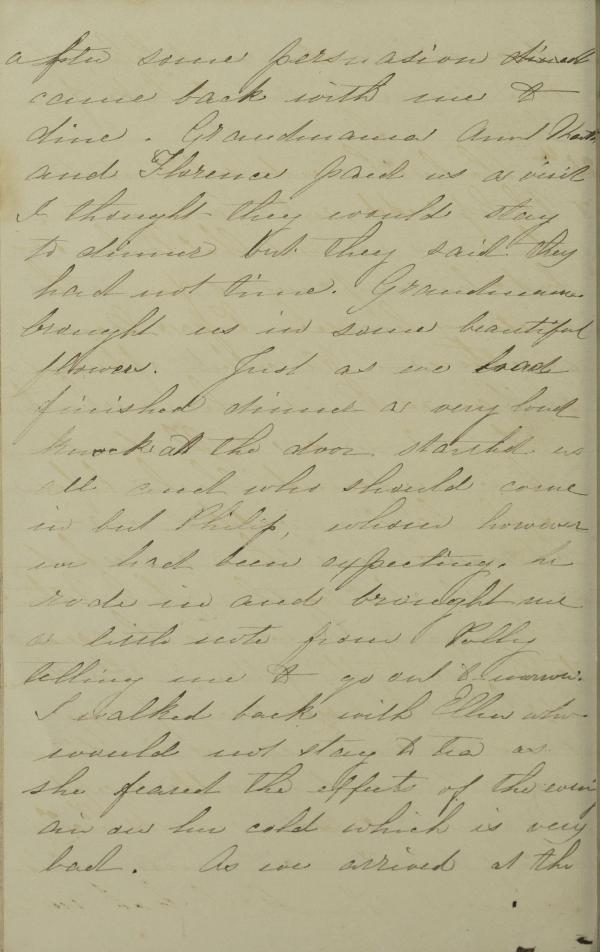 after some persuasion dined
came back with me to
dine. Grandmama Aunt
and Florence paid us a visit
I thought they would stay
to dinner but they said they
had not time. Grandmama
brought us in some beautiful
flowers. Just as we had
finished dinner a very loud
knock at the door startled us
all and who should come
in but Philip, whom however
we had been expecting. he
rode in and brought me
a little note from Polly
telling me to go out tomorrow.
I walked back with Ellen who
would not stay to tea as
she feared the effects of the evening
air on her cold which is very
bad. As we arrived at the